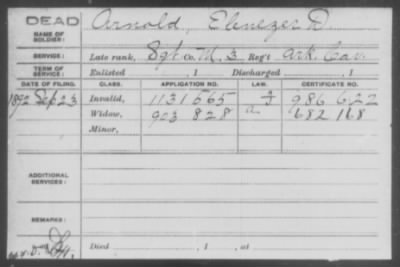 DEAD
NAME OF SOLDIER: Arnold, Ebenezer D.
SERVICE: Late rank, Sgt Co. M, 3 Reg't Ark. Cav.
TERM OF SERVICE: Enlisted , 1 Discharged , 1
DATE OF FILING. CLASS. APPLICATION NO. LAW. CERTIFICATE NO.
1892 Sep 23 Invalid, 1131565 986622
Widow, 903 828 a 682 168
Minor,
ADDITIONAL SERVICES:
REMARKS:
Died , 1 , at